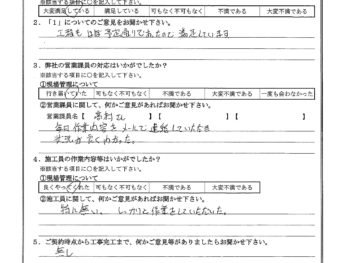 ※該当する項目に○を記入してください。
大変満足している 満足している 可もなく不可もなく 不満である 大変不満である
2．「1」についてのご意見をお聞かせ下さい。
工程も ほぼ 予定通りでしたので 満足しています
3．弊社の営業課員の対応はいかがでしたか？
※該当する項目に○を記入してください。
①現場管理について
行き届いていた 可もなく不可もなく 不満である 大変不満である 一度も会わなかった
②営業課員に関して、何かご意見があればお聞かせ下さい。
営業課員名【 さん 】【 】【 】
毎日 作業内容を メールで 連絡していただき
状況が良くわかった。
4．施工員の作業内容等はいかがでしたか？
※該当する項目に○を記入してください。
①現場管理について
良くやってくれた 可もなく不可もなく 不満である 大変不満である
②施工員に関して、何かご意見があればお聞かせ下さい。
特に無い、しっかりと作業をしていただいた。
5．ご契約時点から工事完工まで、何かご意見等がありましたらお聞かせ下さい。
無し